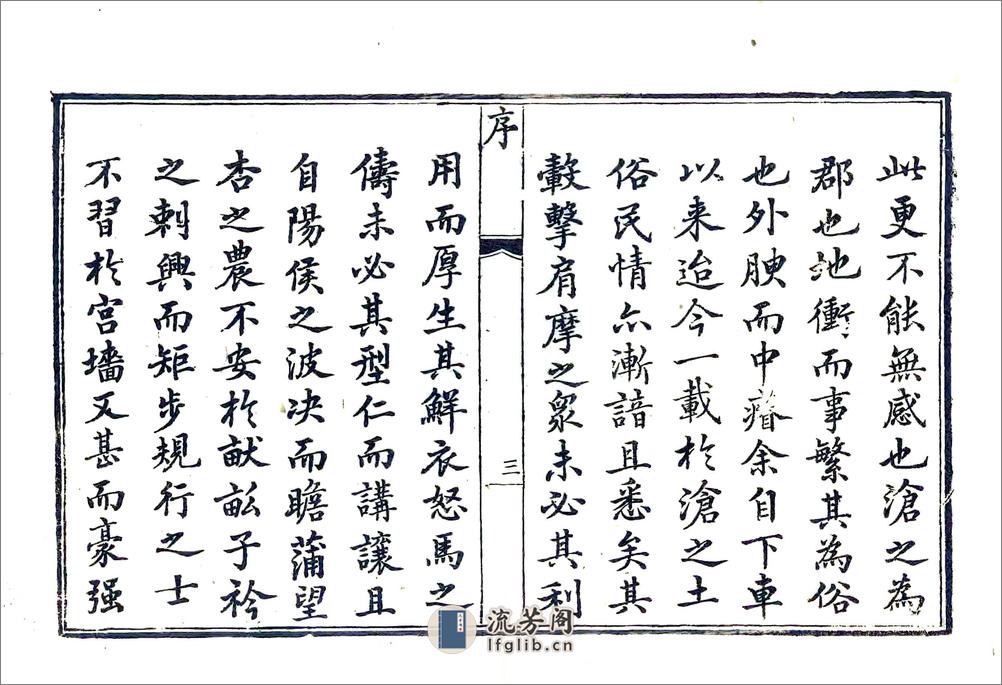 此更不能無感也滄之為
郡也地衝而事繁其為俗
也外腴而中瘠余自下車
以来迨今一載於滄之土
俗民情亦漸諳且悉矣其
轂擊肩摩之眾未必其利
序
三
用而厚生其鮮衣怒馬之
儔未必其型仁而講讓且
自陽侯之波决而瞻蒲望
杏之農不安於畎畝子衿
之刺興而矩步規行之士
不習於宫墻又甚而豪强
流芳阁
lfglib.cn